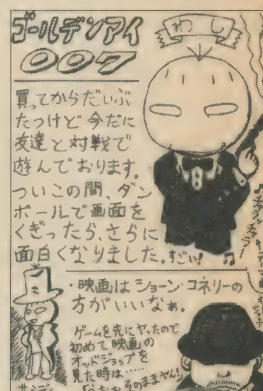 ゴールデンアイ
007
わし
買ってからだいぶ
たつけど今だに
友達と対戦で
遊んでおります。
ついこの間、ダン
ボールで画面を
くぎったら、さらに
面白くなりました。すごい!
・映画はショーン・コネリーの
方がいいなぁ。
ゲームを先にやったので
初めて映画の
オッドジョブを
見た時は……
そのまま やん!